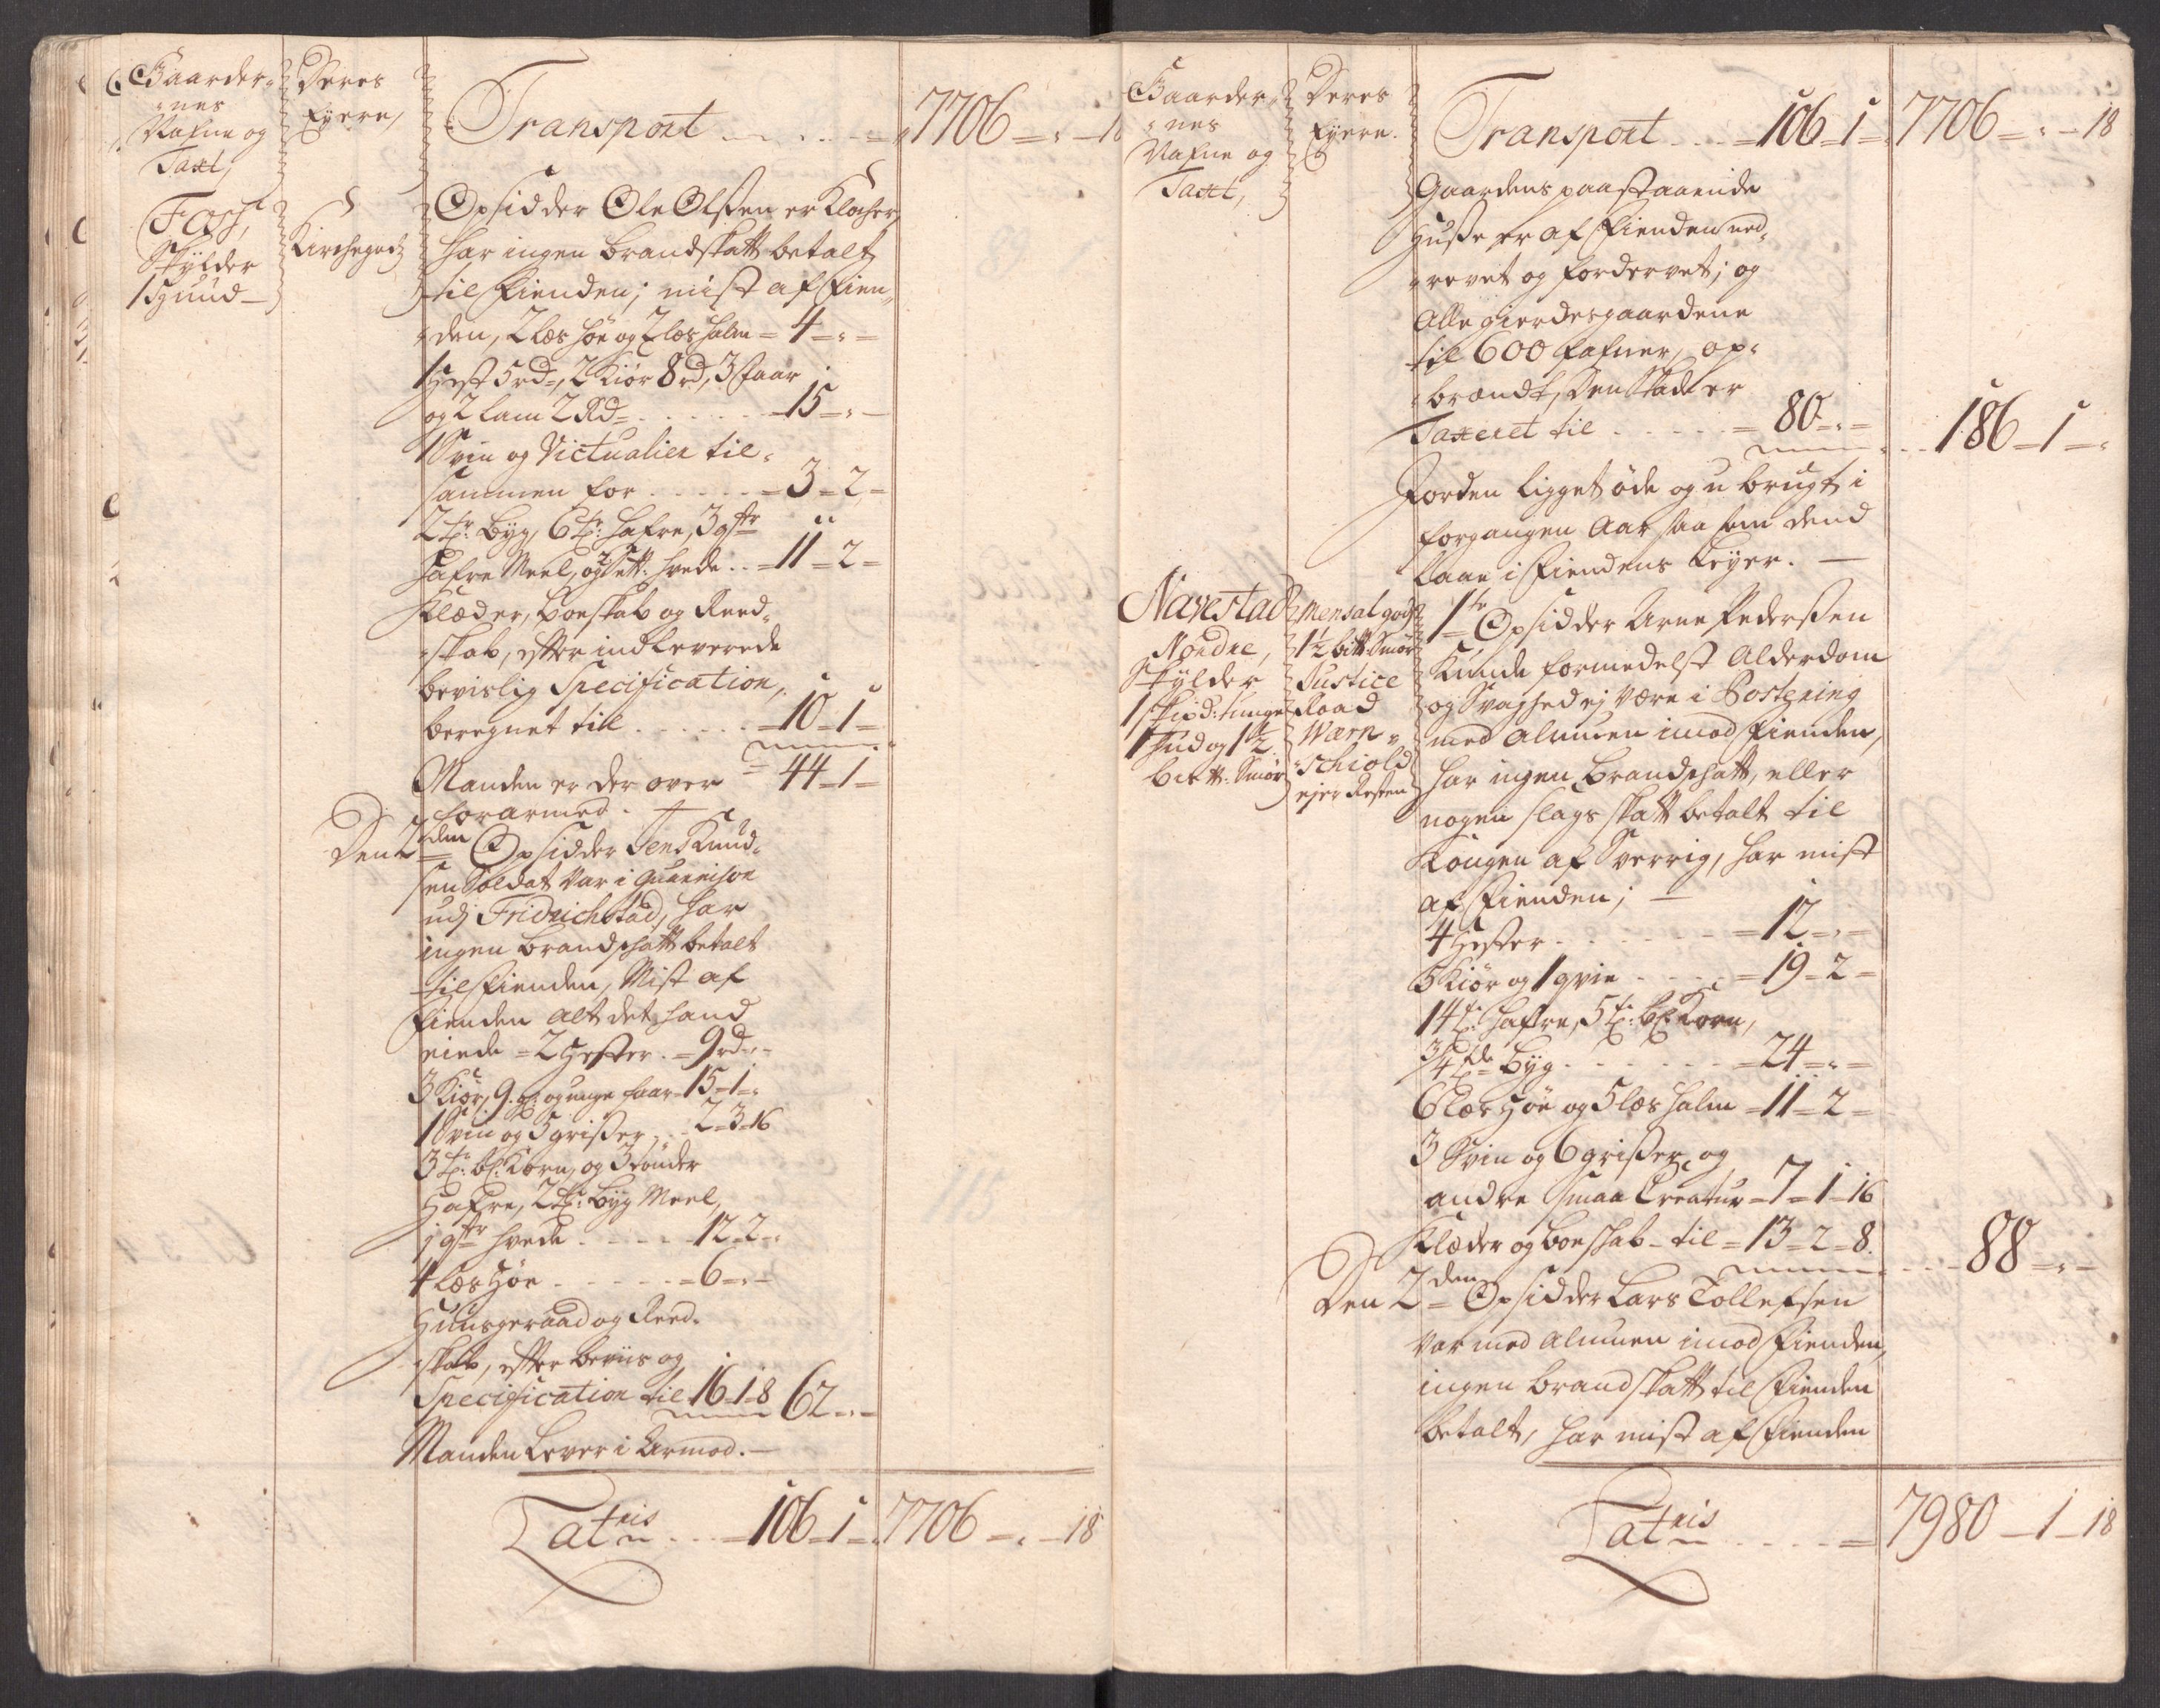 Gaarder-
nes
Nafne og
Taxt,
Deres
Eyere,
Transport - - - - - 7706 - - 18
Foss,
Skylder
1 Huud -
Kirchegodz
Opsidder Ole Olssen er Klocher
har ingen brandskatt betalt
til Fienden; mist af Fien-
den, 2 læs høe og 2 læs halm = 4 - -
1 Hest 5 rd, 2 Kiør 8 rd, 3 Faar
og 2 lam 2 Rd - - - - - 15 - -
1 Sviin og Victualier til-
sammen for - - - - - 3 - 2 -
2 tr: Byg, 6 tr: hafre, 3 qtr
Hafre Meel, og 2 sett: hvede - - 11 - 2 -
Klæder, boeskab og Reed-
skab, efter indleverede
bevislig Specification,
beregnet till - - - - - 10 - 1 -
= 44 - 1 -
Manden er der over
forarmed.
Den 2den Opsidder Jens Knud-
sen Soldat var i Guarnison
udj Fridrichstad, har
ingen brandschatt betalt
til Fienden, Mist af
Fienden alt det hand
eiede = 2 Hester - 9 rd -
3 Kiør, 9 gl: og unge faar - 15 - 1 -
1 Sviin og 5 grisser - - 2 - 3 - 16
3 tr: bl: Korn, og 3 tønder
Hafre, 2 tr: byg Meel,
1 qtr hvede - - - - 12 - 2 -
4 læs Høe - - - - - 6 - -
Huusgeraad og Reed-
skab, efter beviis og
Specification til 16 - 1 - 8 62 - -
Manden Lever i Armod. -
Latris - - - 106 - 1 - 7706 - - 18
Gaarder-
nes
Nafne og
Taxt,
Deres
Eyere.
Transport - - - 106 - 1 - 7706 - - 18
Gaardens paastaaende
Husse er af Fienden ned-
revet og fordervet; og
Alle gierdesgaardene
til 600 Fafner, op-
brændt, den Skade er
Taxeret til - - - - - 80 - - - - 186 - 1 -
Jorden ligget øde og u brugt i
forgangen Aar saa som dend
laae i Fiendens Leyer. -
Navestad
Nordre,
Skylder
1 skipd: tunge
1 Hud og 1½
bitt: Smør
Mensal gods
1½ bitt: Smør
Justice
Raad
Wærn-
schiold
ejer Resten
1te Opsidder Arne Pederssen
Kunde formedelst Alderdom
og Svaghed ej være i Postering
med Almuen imod Fienden,
har ingen brandschatt, eller
nogen slags skatt betalt til
Kongen af Sverrig, har mist
af Fienden; -
4 Hester - - - - - - 12 - -
5 Kiør og 1 qvie - - - - 19 - 2 -
14 tr: hafre, 5 tr: bl: Korn,
3/4 tde Byg - - - - - 24 - -
6 Læs Høe og 5 læs halm - 11 - 2 -
3 Sviin og 6 grisser og
andre smaa Creatur - 7 - 1 - 16
Klæder og boeskab - til - 13 - 2 - 8. - - - 88 - -
Den 2den Opsidder Lars Tollefsen
var med almuen imod Fienden,
ingen brandskatt til Fienden
betalt, har mist af Fienden
Latris - - - - 7980 - 1 - 18